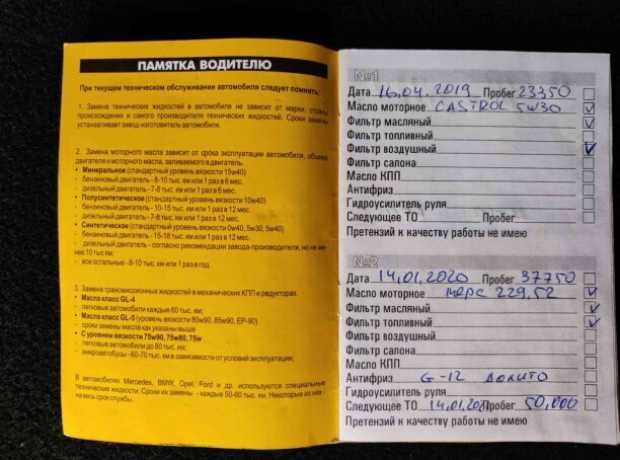 ПАМЯТКА ВОДИТЕЛЮ
При текущем техническом обслуживании автомобиля следует помнить:
1. Замена технических жидкостей в автомобиле не зависит от марки, страны
происхождения и самого производителя технических жидкостей. Сроки замены
устанавливает завод-изготовитель автомобиля.
2. Замена моторного масла зависит от срока эксплуатации автомобиля, объема
двигателя и моторного масла, заливаемого в двигатель.
• Минеральное (стандартный уровень вязкости 15w40)
- бензиновый двигатель - 8-10 тыс. км или 1 раз в 6 мес.
- дизельный двигатель - 7-8 тыс. км или 1 раз в 6 мес.
• Полусинтетическое (стандартный уровень вязкости 10w40)
- бензиновый двигатель - 10-15 тыс. км или 1 раз в 12 мес.
- дизельный двигатель - 7-8 тыс. км или 1 раз в 12 мес.
• Синтетическое (стандартный уровень вязкости 0w40, 5w30, 5w40)
- бензиновый двигатель - 15-18 тыс. км или 1 раз в 12 мес.
- дизельный двигатель - согласно рекомендации завода-производителя, но не ме-
нее 10 тыс км:
- все остальные - 8-10 тыс. км или 1 раз в год.
3. Замена трансмиссионных жидкостей в механических КПП и редукторах.
• Масла класс GL-4
- легковые автомобили каждые 60 тыс. км;
• Масла класс GL-5 (уровень вязкости 80w90, 85w90, EP-90)
- сроки замены масла как указаны выше
• С уровнем вязкости 75w90, 75w80, 75w
- легковые автомобили до 80 тыс. км;
- микроавтобусы - 60-70 тыс. км в зависимости от условий эксплуатации;
В автомобилях Mercedes, BMW, Opel, Ford и др. используются специальные
технические жидкости. Сроки их замены - каждые 50-60 тыс. км. Некоторые из них -
на весь срок службы.
№1
Дата 16.04.2019 Пробег 23350
Масло моторное CASTROL 5W30
Фильтр масляный
Фильтр топливный
Фильтр воздушный
Фильтр салона
Масло КПП
Антифриз
Гидроусилитель руля
Следующее ТО Пробег
Претензий к качеству работы не имею
№2
Дата 14.01.2020 Пробег 37750
Масло моторное мерс 229,52
Фильтр масляный
Фильтр топливный
Фильтр воздушный
Фильтр салона
Масло КПП
Антифриз G-12 долито
Гидроусилитель руля
Следующее ТО 14.01.20 Пробег 50,000
Претензий к качеству работы не имею